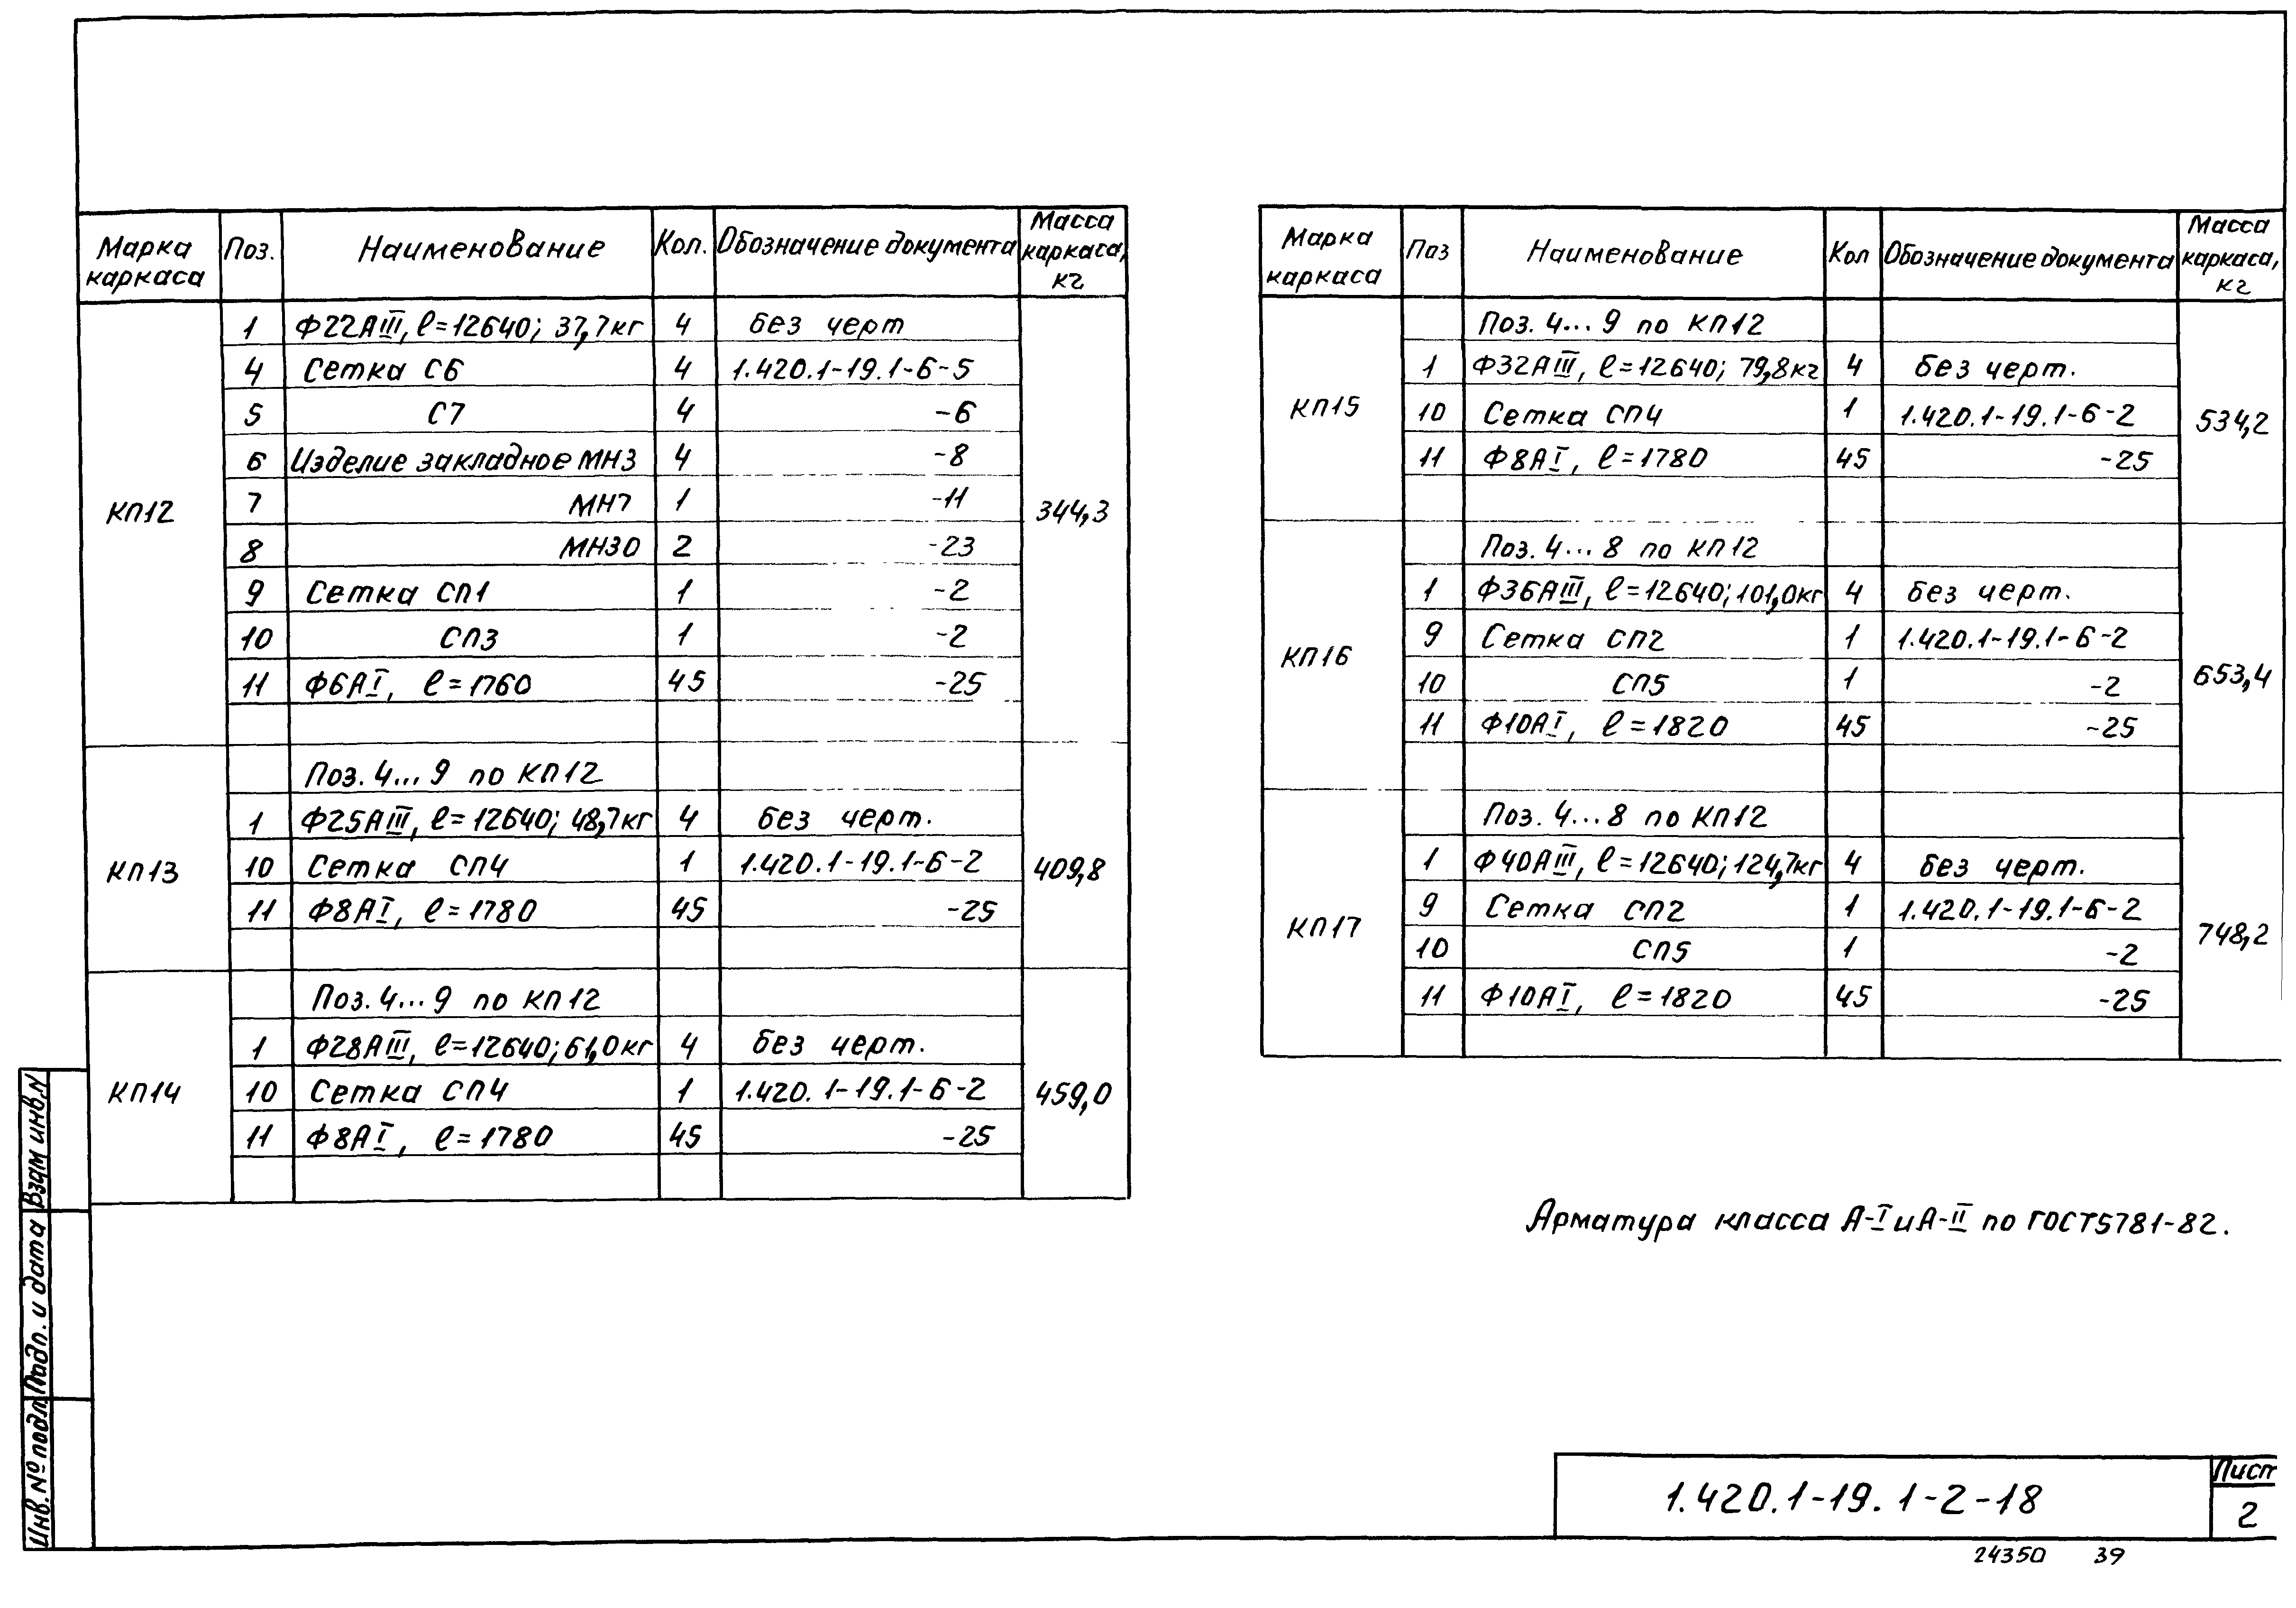 Марка каркаса | Поз. | Наименование | Кол. | Обозначение документа | Масса каркаса, кг
КП12 | 1 | Ф22АIII, ℓ=12640; 37,7кг | 4 | без черт | 344,3
4 | Сетка С6 | 4 | 1.420.1-19.1-6-5
5 | С7 | 4 | -6
6 | Изделие закладное МН3 | 4 | -8
7 | МН7 | 1 | -11
8 | МН30 | 2 | -23
9 | Сетка СП1 | 1 | -2
10 | СП3 | 1 | -2
11 | Ф6АI, ℓ=1760 | 45 | -25
КП13 | Поз. 4...9 по КП12 | 409,8
1 | Ф25АIII, ℓ=12640; 48,7кг | 4 | без черт.
10 | Сетка СП4 | 1 | 1.420.1-19.1-6-2
11 | Ф8АI, ℓ=1780 | 45 | -25
КП14 | Поз. 4...9 по КП12 | 459,0
1 | Ф28АIII, ℓ=12640; 61,0кг | 4 | без черт.
10 | Сетка СП4 | 1 | 1.420.1-19.1-6-2
11 | Ф8АI, ℓ=1780 | 45 | -25
Марка каркаса | Поз | Наименование | Кол | Обозначение документа | Масса каркаса, кг
КП15 | Поз. 4...9 по КП12 | 534,2
1 | Ф32АIII, ℓ=12640; 79,8кг | 4 | без черт.
10 | Сетка СП4 | 1 | 1.420.1-19.1-6-2
11 | Ф8АI, ℓ=1780 | 45 | -25
КП16 | Поз. 4...8 по КП12 | 653,4
1 | Ф36АIII, ℓ=12640; 101,0кг | 4 | без черт.
9 | Сетка СП2 | 1 | 1.420.1-19.1-6-2
10 | СП5 | 1 | -2
11 | Ф10АI, ℓ=1820 | 45 | -25
КП17 | Поз. 4...8 по КП12 | 748,2
1 | Ф40АIII, ℓ=12640; 124,7кг | 4 | без черт.
9 | Сетка СП2 | 1 | 1.420.1-19.1-6-2
10 | СП5 | 1 | -2
11 | Ф10АI, ℓ=1820 | 45 | -25
Арматура класса А-I и А-II по ГОСТ5781-82.
Взам инв.N
Подп. и дата
Инв. № подл.
1.420.1-19.1-2-18
Лист
2
24350 39